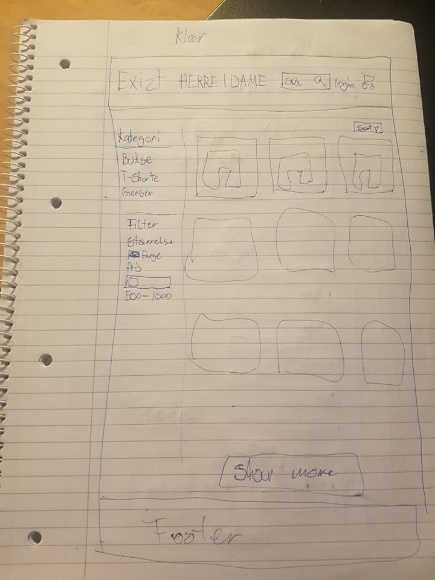 Klær
Exizt HERRE | DAME Søk login
Sort
Kategori
Bukse
T-Shorte
Genser
Filter
Størrelse
Farge
Pris
500-1000
Show more
Footer